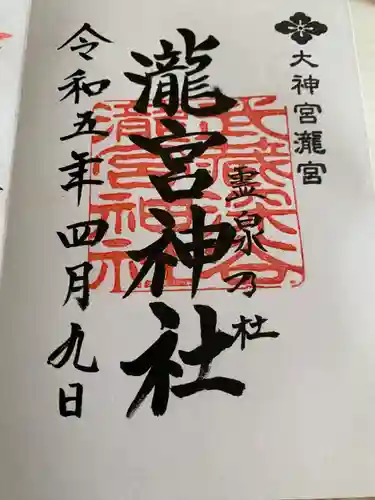 大神宮瀧宮
霊泉乃杜
瀧宮神社
令和五年四月九日
武蔵深谷
瀧宮神社